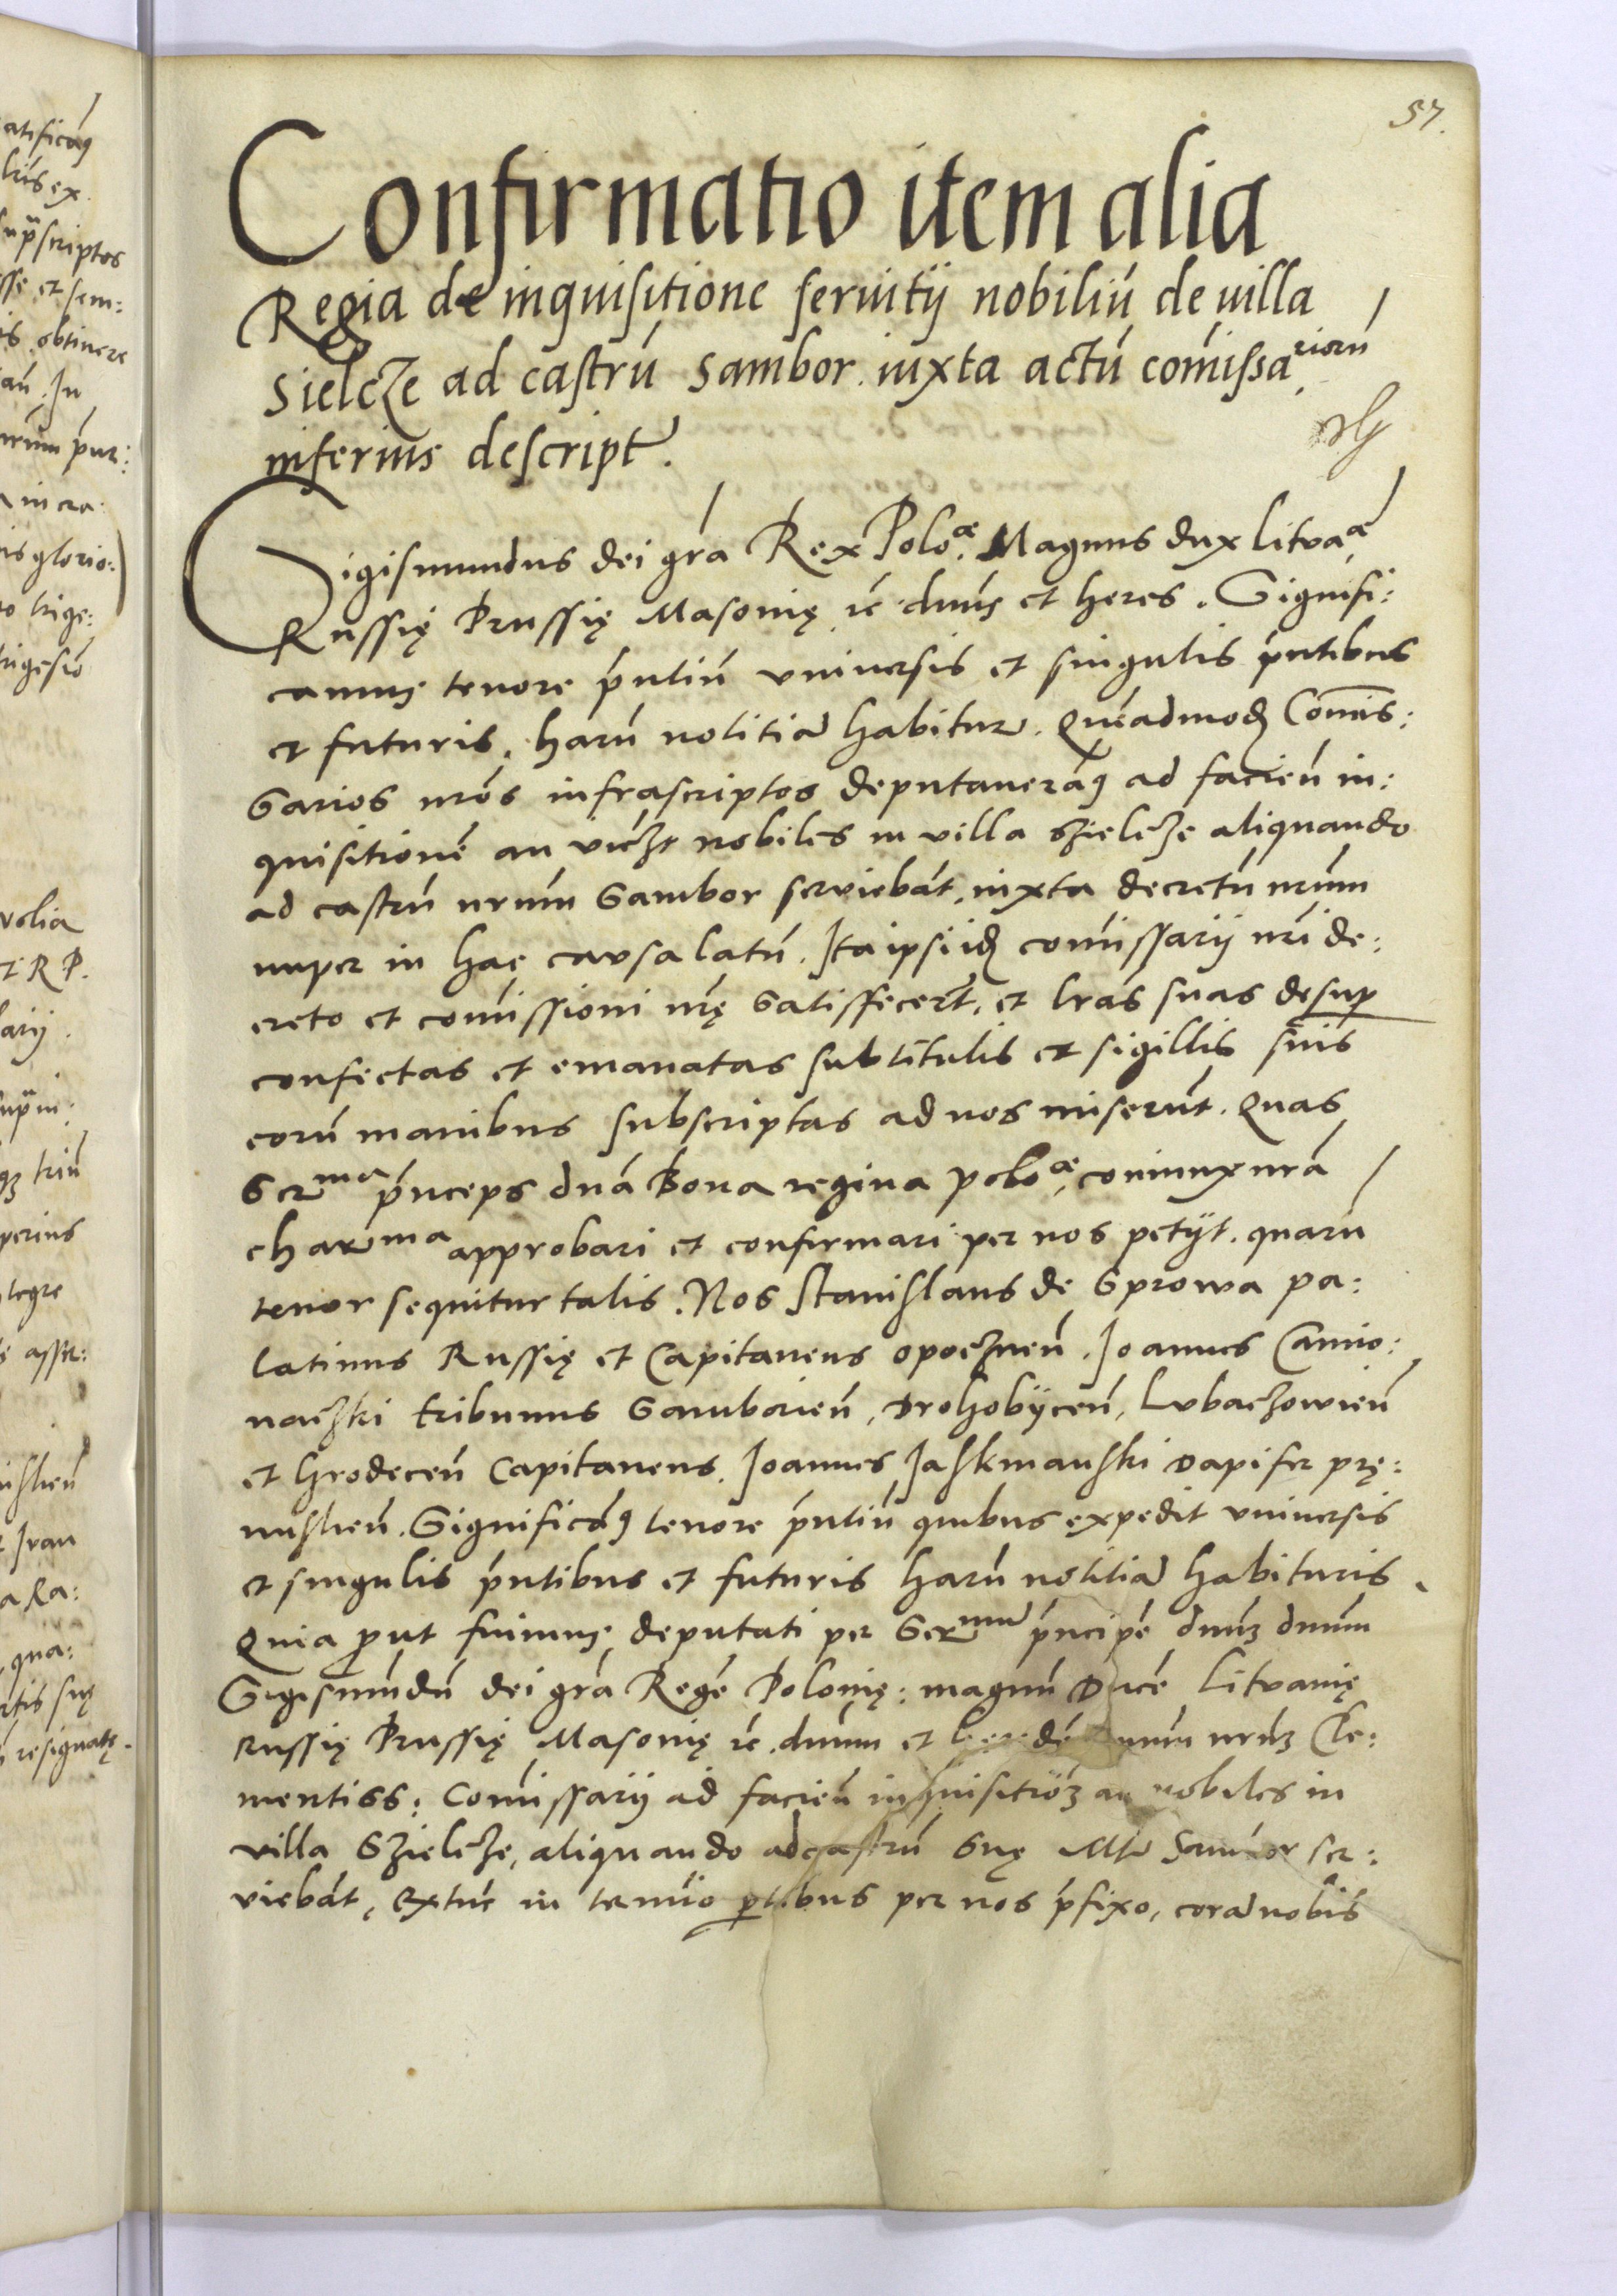 57.
Confirmatio item alia
Regia de inquisitione seruitij nobiliū de uilla
Sielcze ad castrū Sambor iuxta actū comissariorū
inferius descript.
Sigismundus dei grā Rex Poloæ. Magnus dux Lituaæ
Russię Prussię Masouię ꝛc dnūs et heres. Signifi:
camus tenore pn̄tiū vniuersis et singulis pn̄tibus
et futuris, harū notitia habitur. Quēadmod Comis:
sarios nrōs infrascriptos deputaueramꝰ ad facien̄ in:
quisitionē an nobiles in villa Szielcze aliquando
ad castrū nrūm Sambor seruiebāt, iuxta decretū nrūm
nuper in hac causa latū. Ita ipsi iid comissarij nrī de:
creto et comissioni nrę satisfecert, et lrās suas desup
confectas et emanatas sub titulis et sigillis suis
eorū manibus subscriptas ad nos miserūt. Quas
Serma prīnceps dnā Bona regina Poloæ, coniunx nrā
charma approbari et confirmari per nos petijt. quarū
tenor sequitur talis. Nos Stanislaus de Sprowa pa:
latinus Russię et Capitaneus opoczneñ. Joannes Camio:
naczski tribunus Samborieñ, Drohobijceñ, Lubaczowieñ
et Hrodeceñ Capitaneus. Joannes Jaskmanski Dapifer prę:
mislieñ. Significamꝰ tenore pn̄tiū quibus expedit vniuersis
et singulis pn̄tibus et futuris harū notitia habituris.
Quia put fuimus deputati per Sermu prīncipē dnūm dnūm
Sigismūdū dei grā Regē Polonię: magnū Ducē Lituanię
Russię Prussię Masouię ꝛc. dnūm et heredē dnūm nrūm Cle:
mentiss: Comissarij ad facieñ inquisitiōꝫ an nobiles in
villa Szielcze, aliquando ad castrū Suę Mtis Sambor ser:
viebāt, extūc in termīo ptibus per nos pfixo, cora nobis